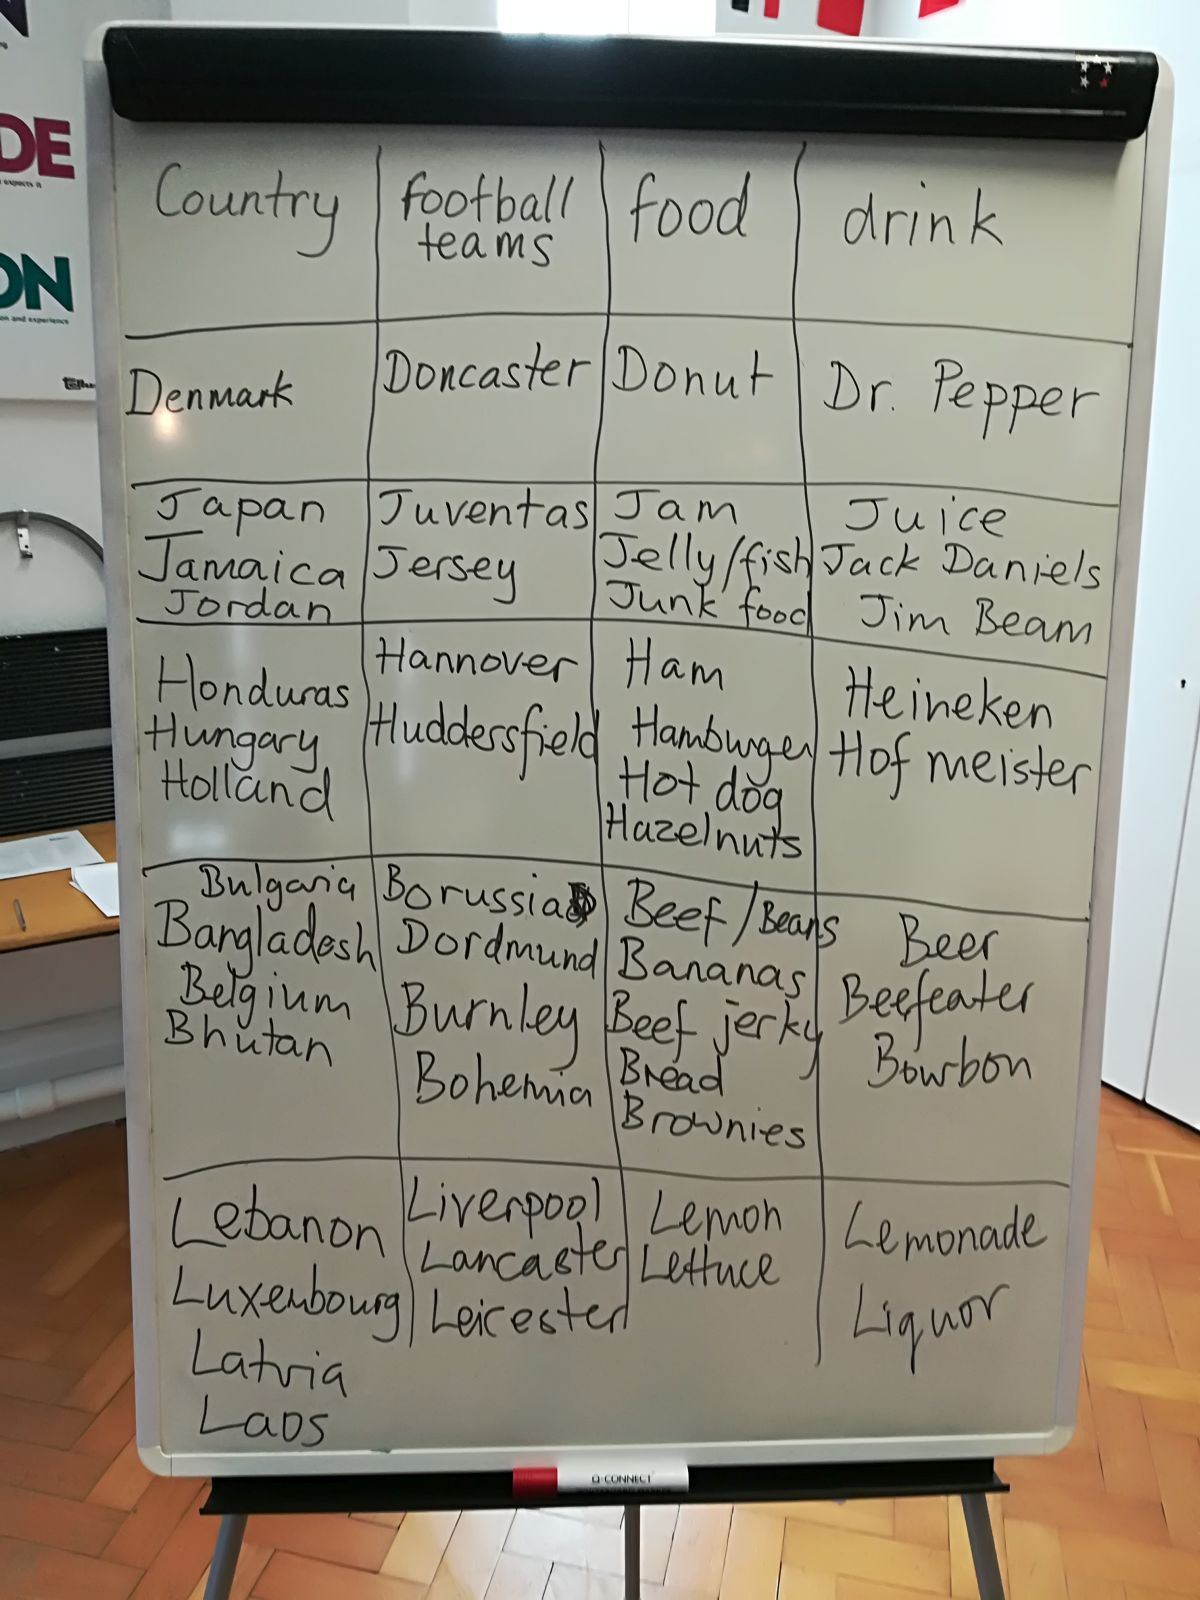 DE
expects it
ON
on and experience
Country football teams food drink
Denmark Doncaster Donut Dr. Pepper
Japan Juventas Jam Juice
Jamaica Jersey Jelly/fish Jack Daniels
Jordan Junk food Jim Beam
Honduras Hannover Ham Heineken
Hungary Huddersfield Hamburger Hof meister
Holland Hot dog
Hazelnuts
Bulgaria Borussia Beef/Beans Beer
Bangladesh Dordmund Bananas Beefeater
Belgium Burnley Beef jerky Bourbon
Bhutan Bohemia Bread
Brownies
Lebanon Liverpool Lemon Lemonade
Luxembourg Lancaster Lettuce Liquor
Latvia Leicester
Laos
Q-CONNECT